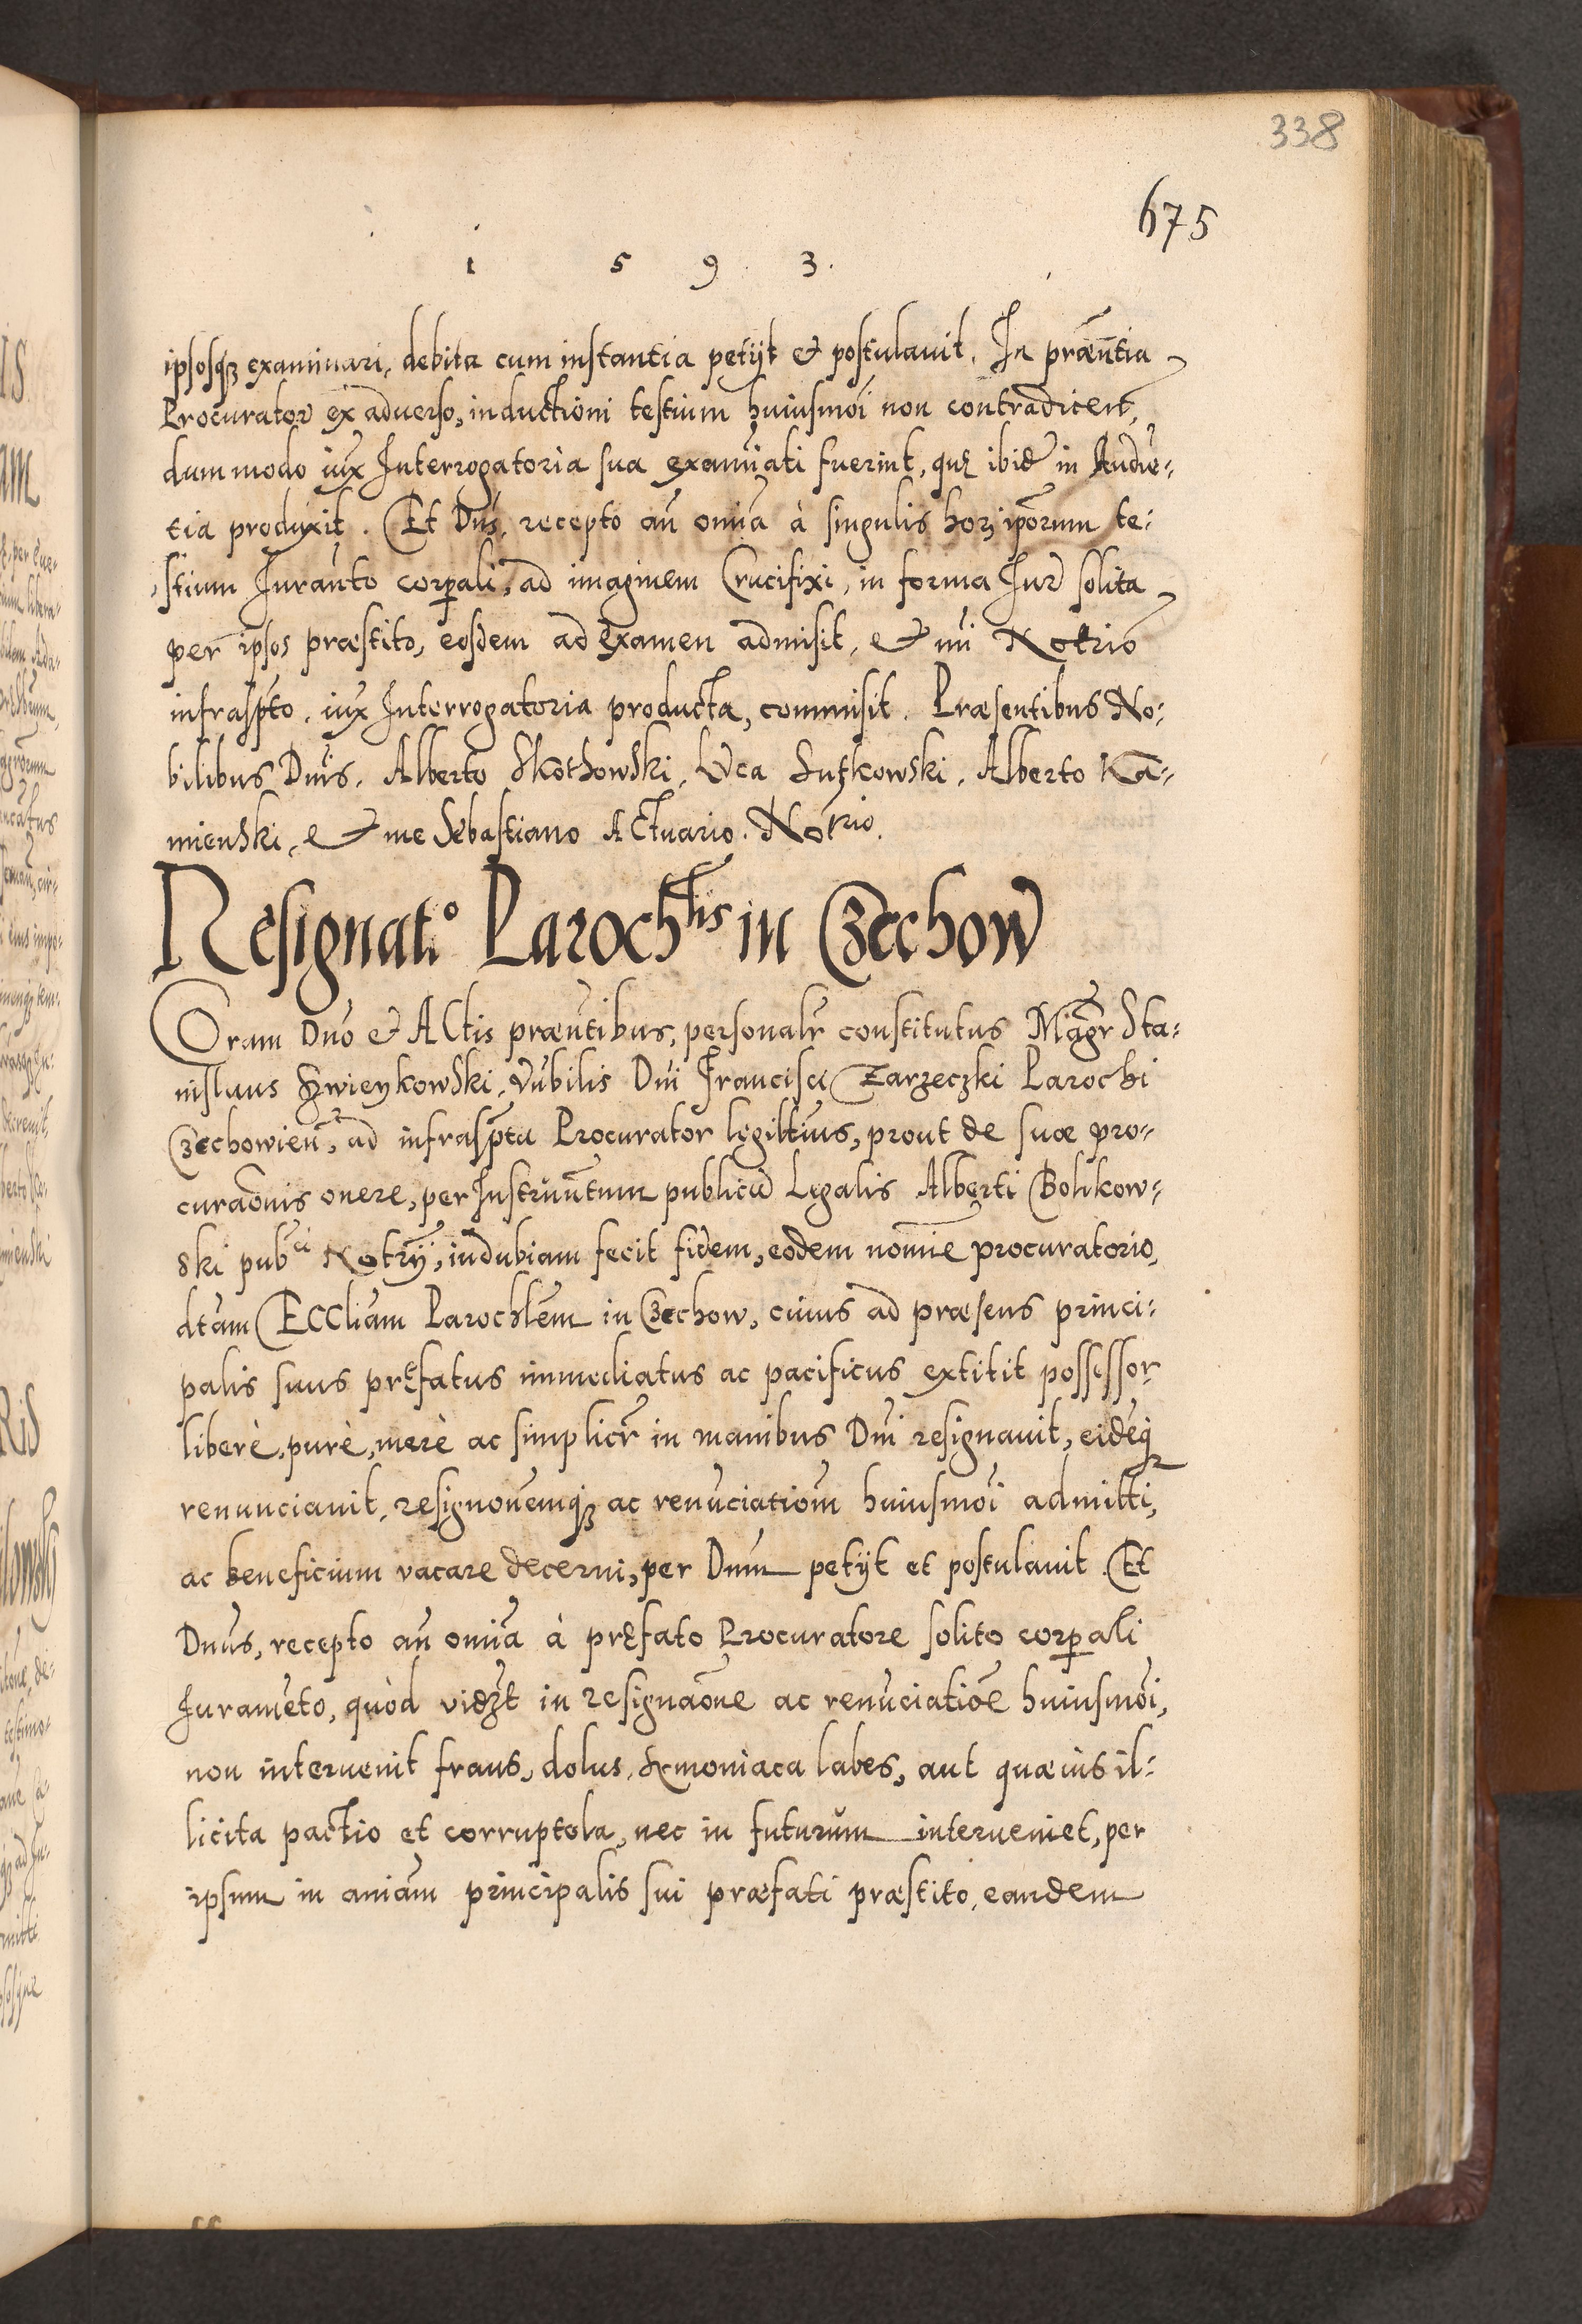 338
675
1 5 9 3.
ipsosq₃ examinari, debita cum instantia petijt et postulauit. In præn̄tia
Procurator ex aduerso, inductioni testium huiusmōi non contradicen̄t,
dummodo iux̄ Interrogatoria sua examīati fuerint, quę ibid̄ in Audiē-
tia produxit. Et Dn̄s, recepto an̄ omīa à singulis hor₃ ip̄orum te-
stium Juran̄to corꝑali, ad imaginem Crucifixi, in forma Jur̄ solita
per ipsos præstito, eosdem ad Examen admisit, et mi Notriō
infrasp̄to, iux̄ Interrogatoria producta, commisit. Præsentibus No-
bilibus Dn̄is. Alberto Skothowski, Luca Sutkowski, Alberto Ka-
mienski, et me Sebastiano Actuario. Nōtrio.
Resignati° Paroch^lis in Czechow
Coram Dn̄o et Actis præn̄tibus, personalr̄ constitutus Mag̃r Sta-
nislaus Swieykowski, Vn̄bilis Dn̄i Francisci Zarzeczki Parochi
Czechowien̄, ad infrasp̄ta Procurator legitt̄ius, prout de suæ pro-
curaōnis onere, per Instrūn̄tum publicū Legalis Alberti Bolikow-
ski pub^ci Notrȳ, indubiam fecit fidem, eodem nomīe procuratorio,
dt̄am Eccliām Parochlēm in Czechow, cuius ad præsens princi-
palis suus pręfatus immediatus ac pacificus extitit possessor
liberè, purè, merè ac simplicr̄ in manibus Dn̄i resignauit, eidēq₃
renunciauit, resignōnemq₃ ac renūciatiōm huiusmōi admitti,
ac beneficium vacare decerni, per Dnūm petijt et postulauit. Et
Dnūs, recepto an̄ omīa à pręfato Procuratore solito corꝑali
Juramēto, quòd vid₃t in resignaōne ac renūciatiōe huiusmōi,
non interuenit fraus, dolus, Symoniaca labes, aut quæuis il-
licita pactio et corruptela, nec in futurŭm interueniet, per
ipsum in aniām principalis sui præfati præstito, eandem